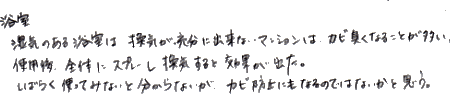 浴室
湿気のある浴室は換気が充分に出来ないマンションは、カビ臭くなることが多い。
使用後、全体にスプレーし換気すると効果が出た。
しばらく使ってみないと分からないが、カビ防止にもなるのではないかと思う。